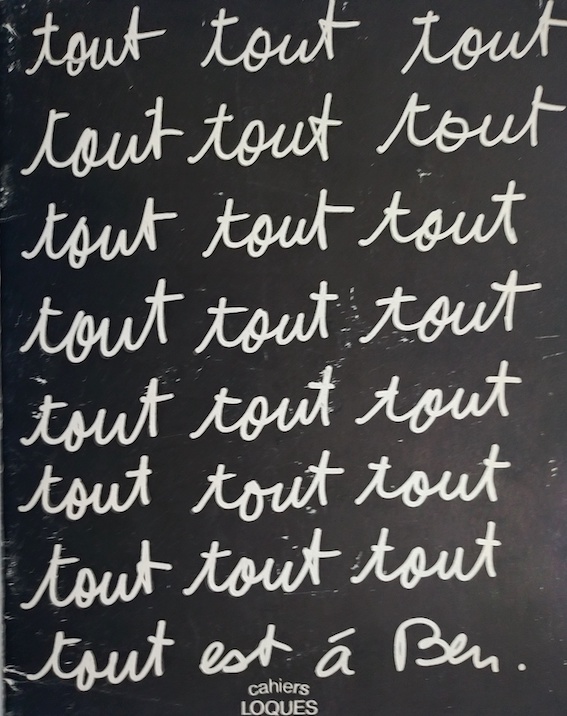 tout tout tout
tout tout tout
tout tout tout
tout tout tout
tout tout tout
tout tout tout
tout tout tout
tout est á Ben.
cahiers
LOQUES